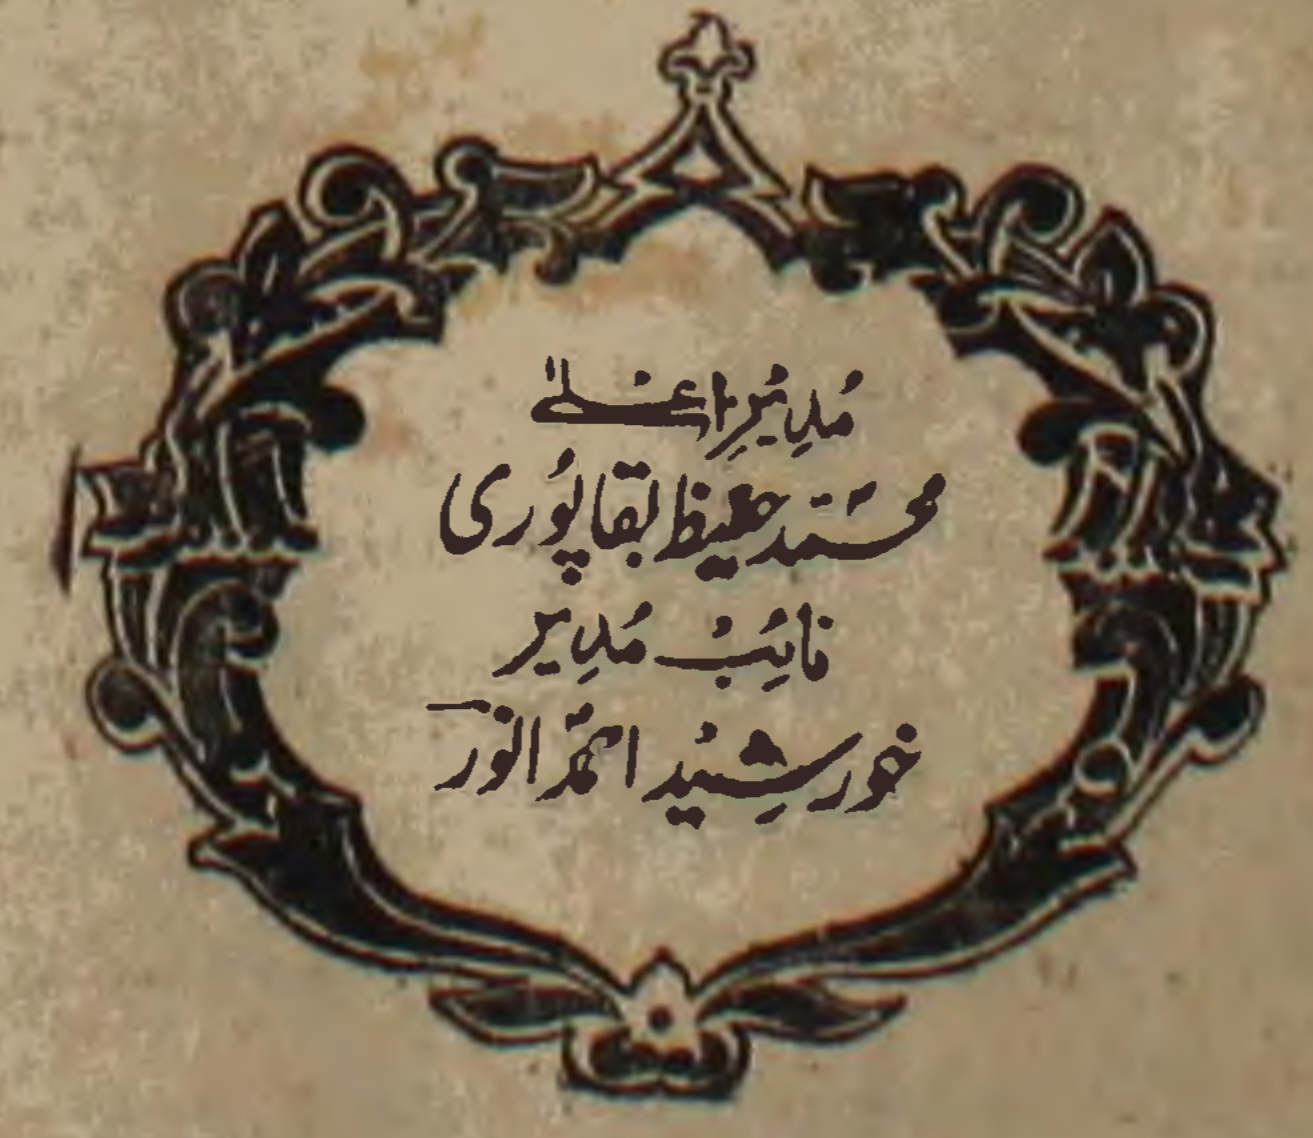 مُدِیرِ اعلیٰ
محمّد حفیظ بقاپوری
نائب مُدِیر
خورشید احمد انور